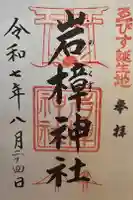 ゑびす誕生地
参拝
岩樟神社
令和七年八月二十四日